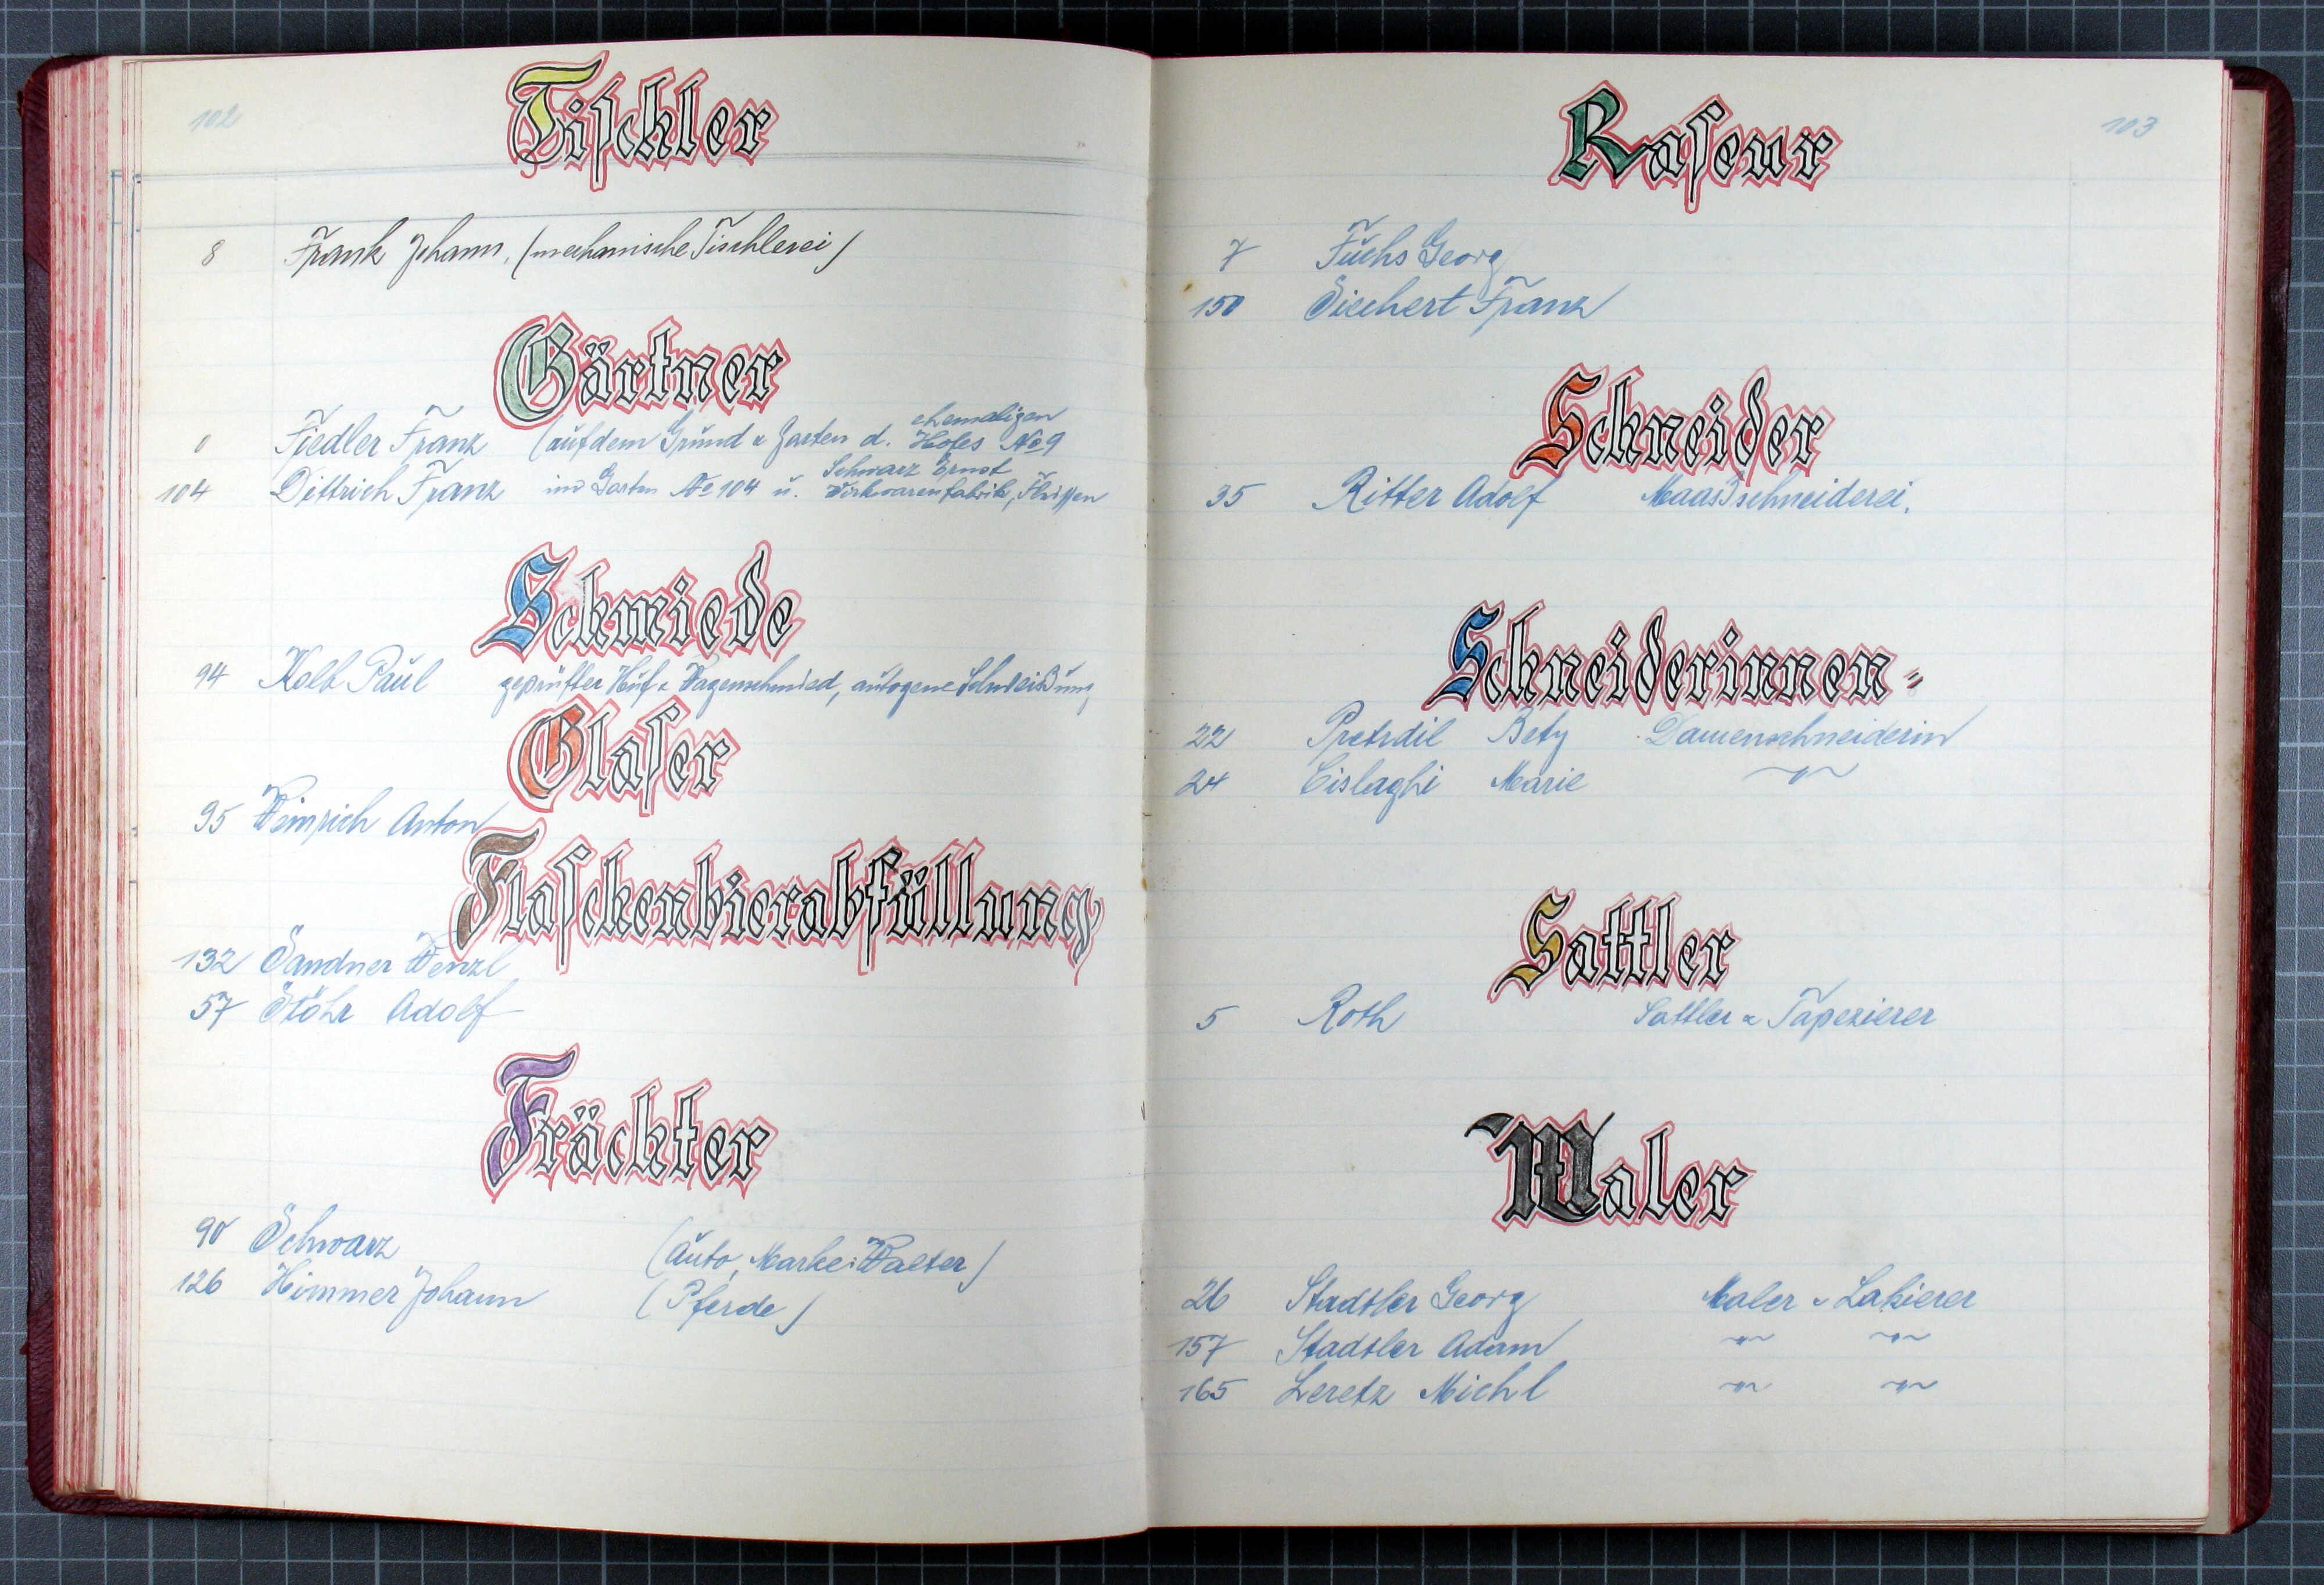 102
Tischler
8 Frank Johann, (mechanische Tischlerei)
Gärtner
0 Fiedler Franz (auf dem Grund u Garten d. ehemaligen Hofes No 9
104 Dittrich Franz im Garten No 104 u. Schwarz Ernst Wirkwarenfabrik, Flissen
Schmiede
94 Kolb Paul geprüfter Huf u Wagenschmied, autogene Schweißung
Glaser
95 Weinrich Anton
Flaschenbierabfüllung
132 Sandner Wenzl
57 Stöhr Adolf
Frächter
90 Schwarz (Auto, Marke: Walter)
126 Himmer Johann (Pferde)
103
Raseur
7 Fuchs Georg
150 Siechert Franz
Schneider
35 Ritter Adolf Maassschneiderei.
Schneiderinnen
22 Bety Damenschneiderin
24 Cislaghi Marie 〃
Sattler
5 Roth Sattler u Tapezierer
Maler
26 Stadtler Georg Maler u Lakierer
157 Stadtler Adam 〃 〃
165 Leretz Michl 〃 〃